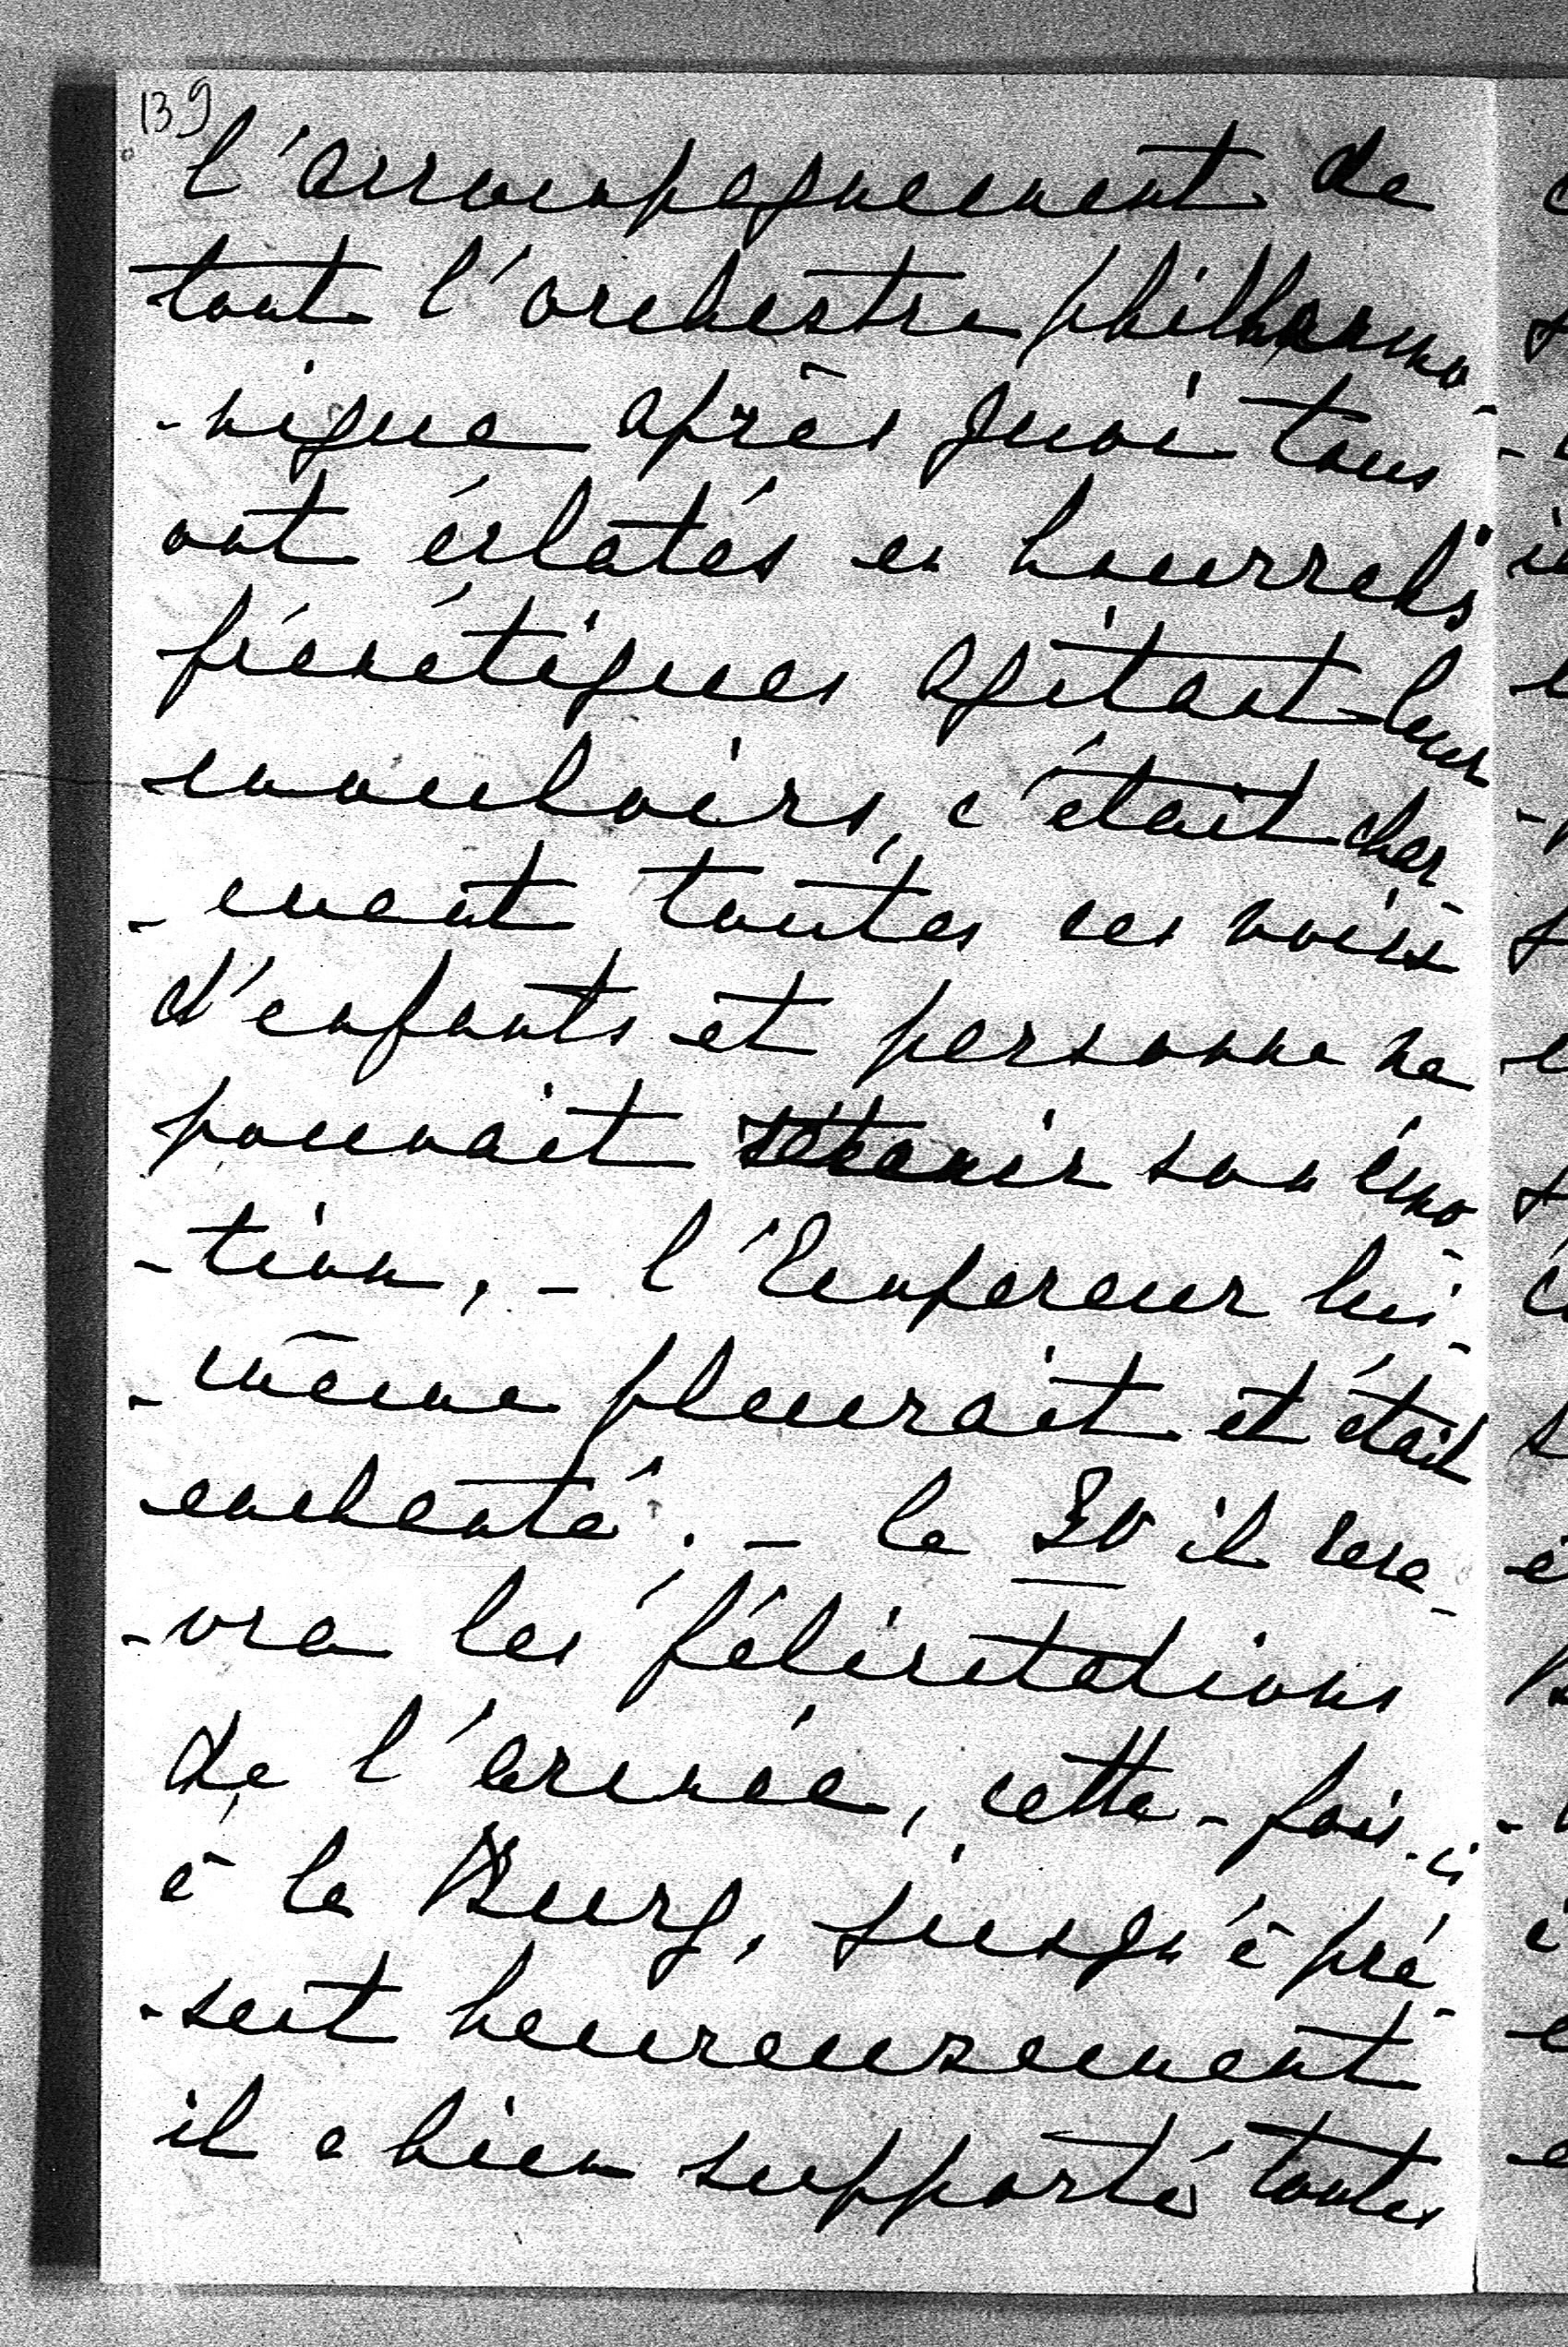 139
l'accompagnement de
tout l'orchestre philharmo-
-nique après quoi tous
ont éclatés en hourrah's
frénétiques agitant leur
mouchoirs, c'était char
-mant toutes ces voix
d'enfants et personne ne
pouvait retenir son émo-
-tion, - l'Empereur lui-
-même pleurait et était
enchanté. - le 30 il rece-
-vra les félicitations
de l'armée, cette-fois-ci
à la Burg, jusqu'à pré-
-sent heureusement
il a bien supporté toutes